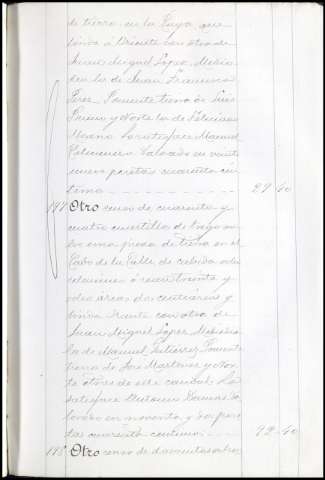 de tierra en la Puya, que
linda á Oriente con otra de
Juan Miguel López, Medio
dia la de Juan Francisco
Perez, Poniente tierra de Luis
Primo y Norte la de Feliciano
Lo satisface Manuel
valorado en veinte
nueve pesetas cuarenta cén
timos 29 40
197 Otro censo de cuarenta y
cuatro cuartillos de trigo so
bre una pieza de tierra en el
Cabo de la Calle de cabida ocho
celemines ó sean treinta y
dos áreas dos centiáreas y
linda Oriente con otra de
Juan Miguel López, Mediodia
la de Manuel Gutierrez, Poniente
tierra de José Martinez y Nor
te otras de este caudal. Lo
satisface va
lorado en noventa y dos pese
tas cuarenta centimos 92 40
198 Otro censo de doscientas ochos